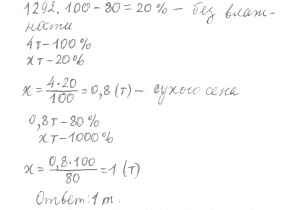 1292. 100 - 80 = 20 % - без влаж-
ности
4т - 100 %
xт - 20 %
x = 4·20/100 = 0,8 (т) - сухого сена
0,8т - 80 %
xт - 1000 %
x = 0,8·100/80 = 1 (т)
Ответ: 1 т.